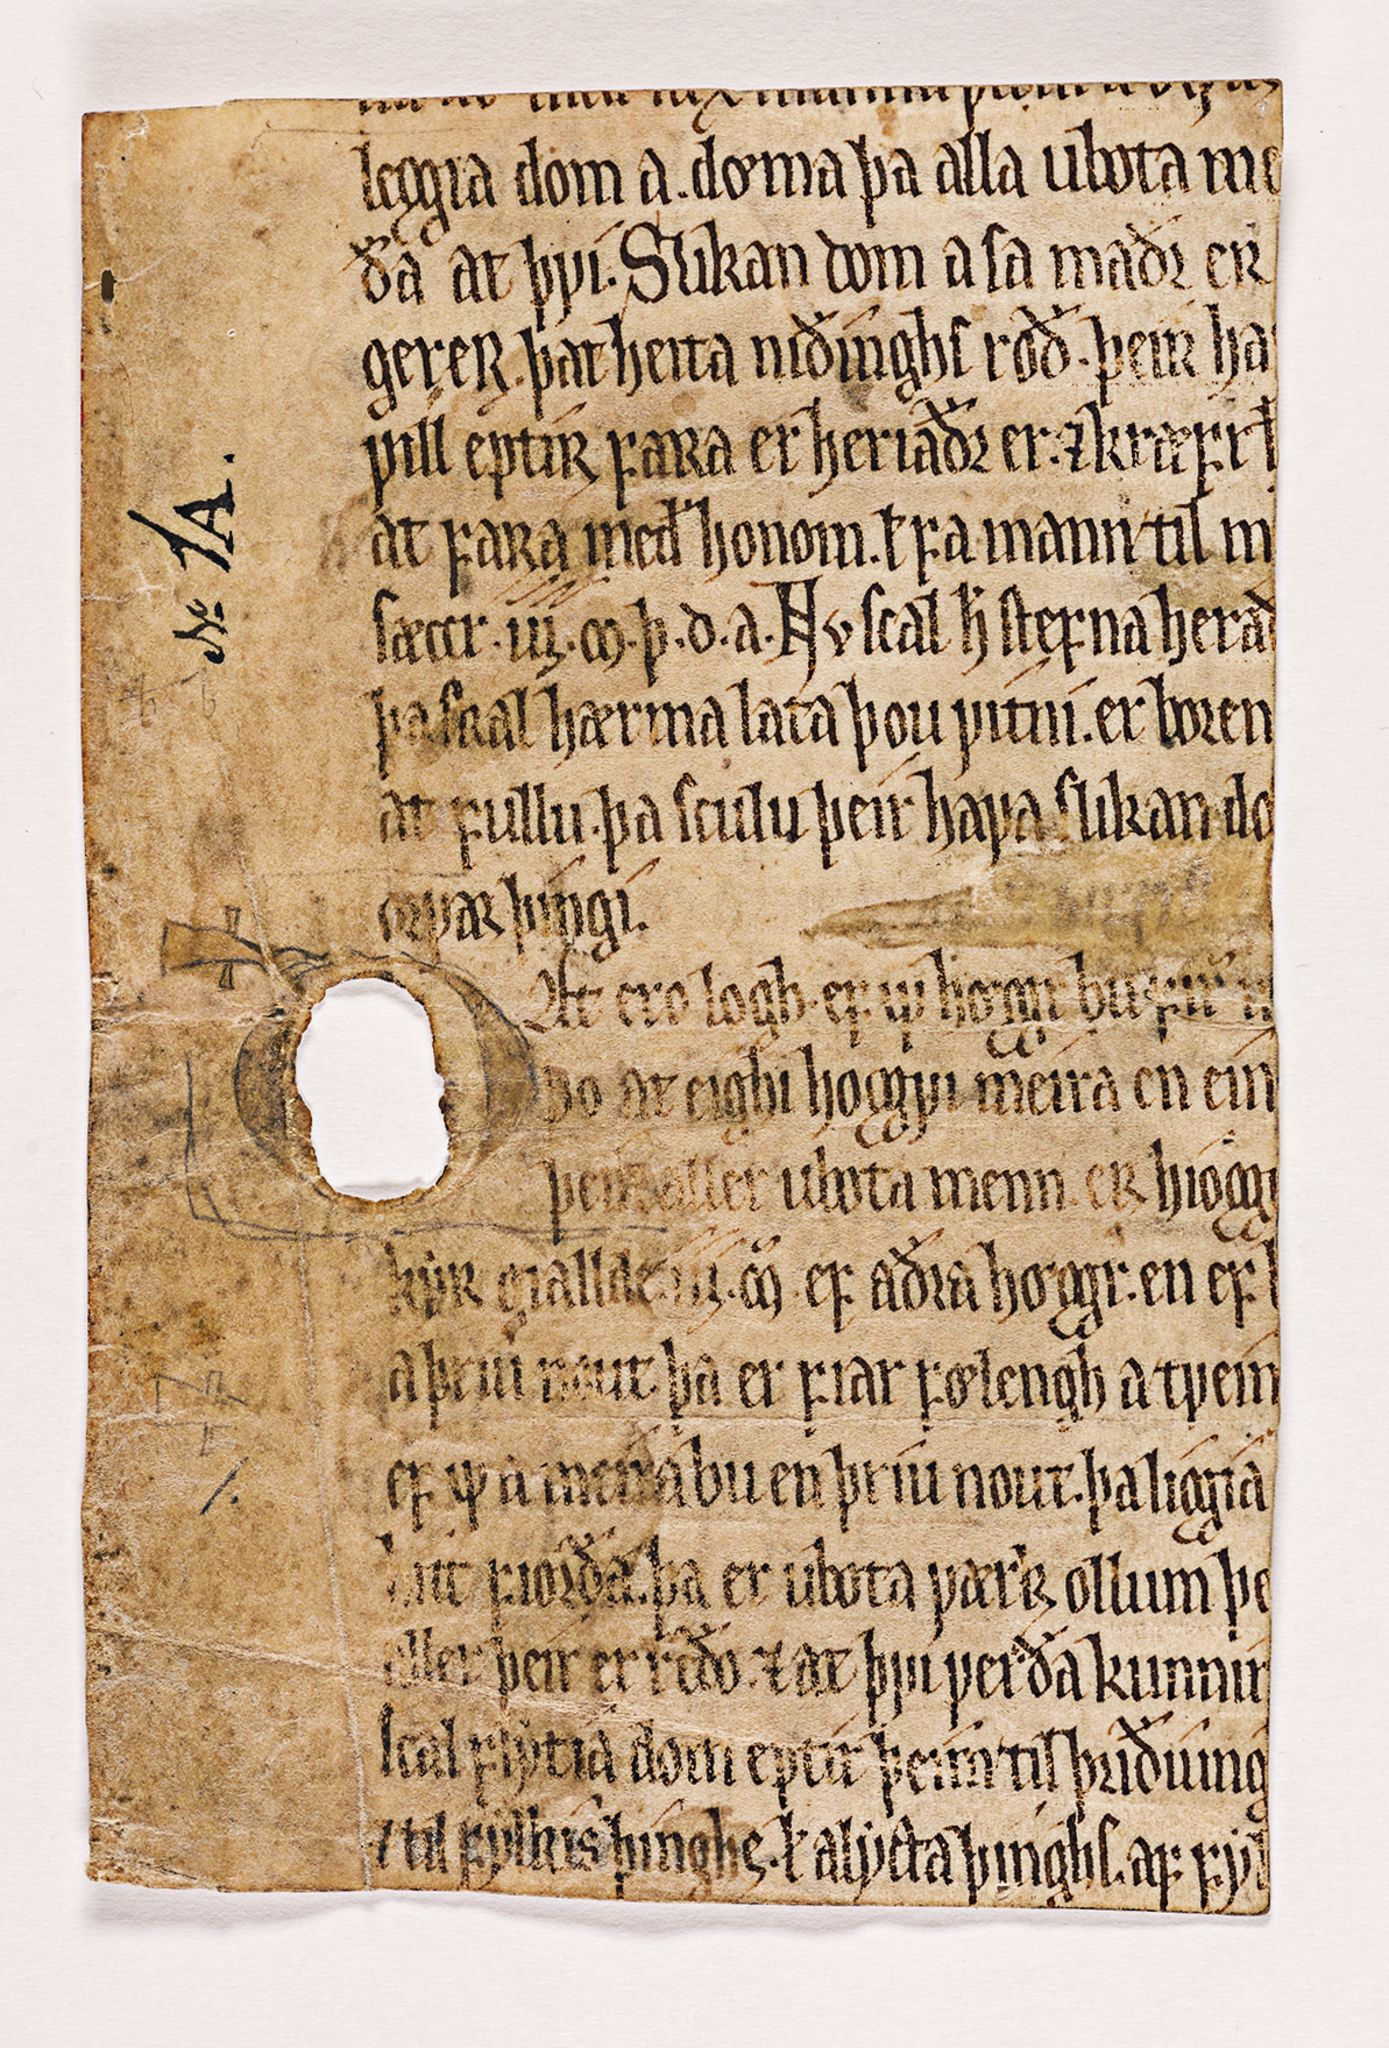 leggia dom a. dǿma þa alla ubota me
ða at þui. Slikan dom a sa maðr er
gerer. þat heita niðinghs rǫð. þeir ha
uill eptir fara er heriaðr er. ⁊ kræfr
at fara með honom. fa mann til
sæccr. iij. m. þ. d. a. Nv scal h̅ stefna herað
þa scal hærma lata þou uitni. er boren
at fullu. þa sculu þeir haua slikan do
oruar þingi.
at ero logh. ef hǫggr bu
Do at eighi hoggui meira en ein
þeir aller ubota menn. er hiogg
kyr giallde. iij. m. ef aðra hǫggr. en ef
a þriu nout. þa er fiar følengh a tueim
ef meira bu en þriu nout. þa liggia
hit fiorða. þa er ubota uærk ollum þe
aller þeir er réðo. ⁊ at þui uerða kunnir
scal flytia dom eptir þeim til þriðiung
⁊ til fylkis þinghs. alyckta þinghs. af fyl
№ 1A.